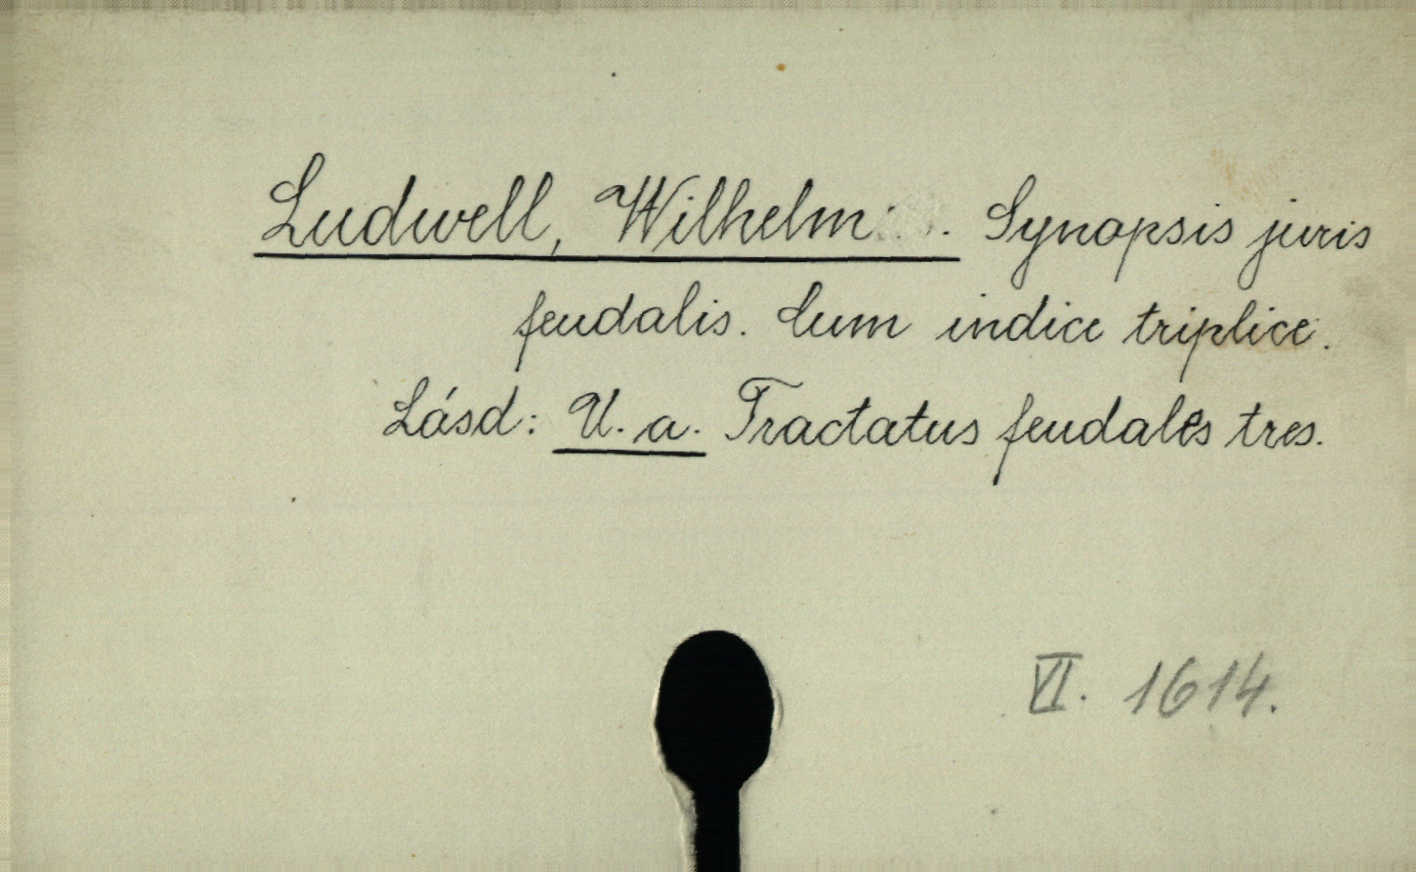 Ludwell, Wilhelm . Synopsis juris
feudalis. Cum indice triplice.
Lásd: U. a. Tractatus feudales tres.
VI. 1614.